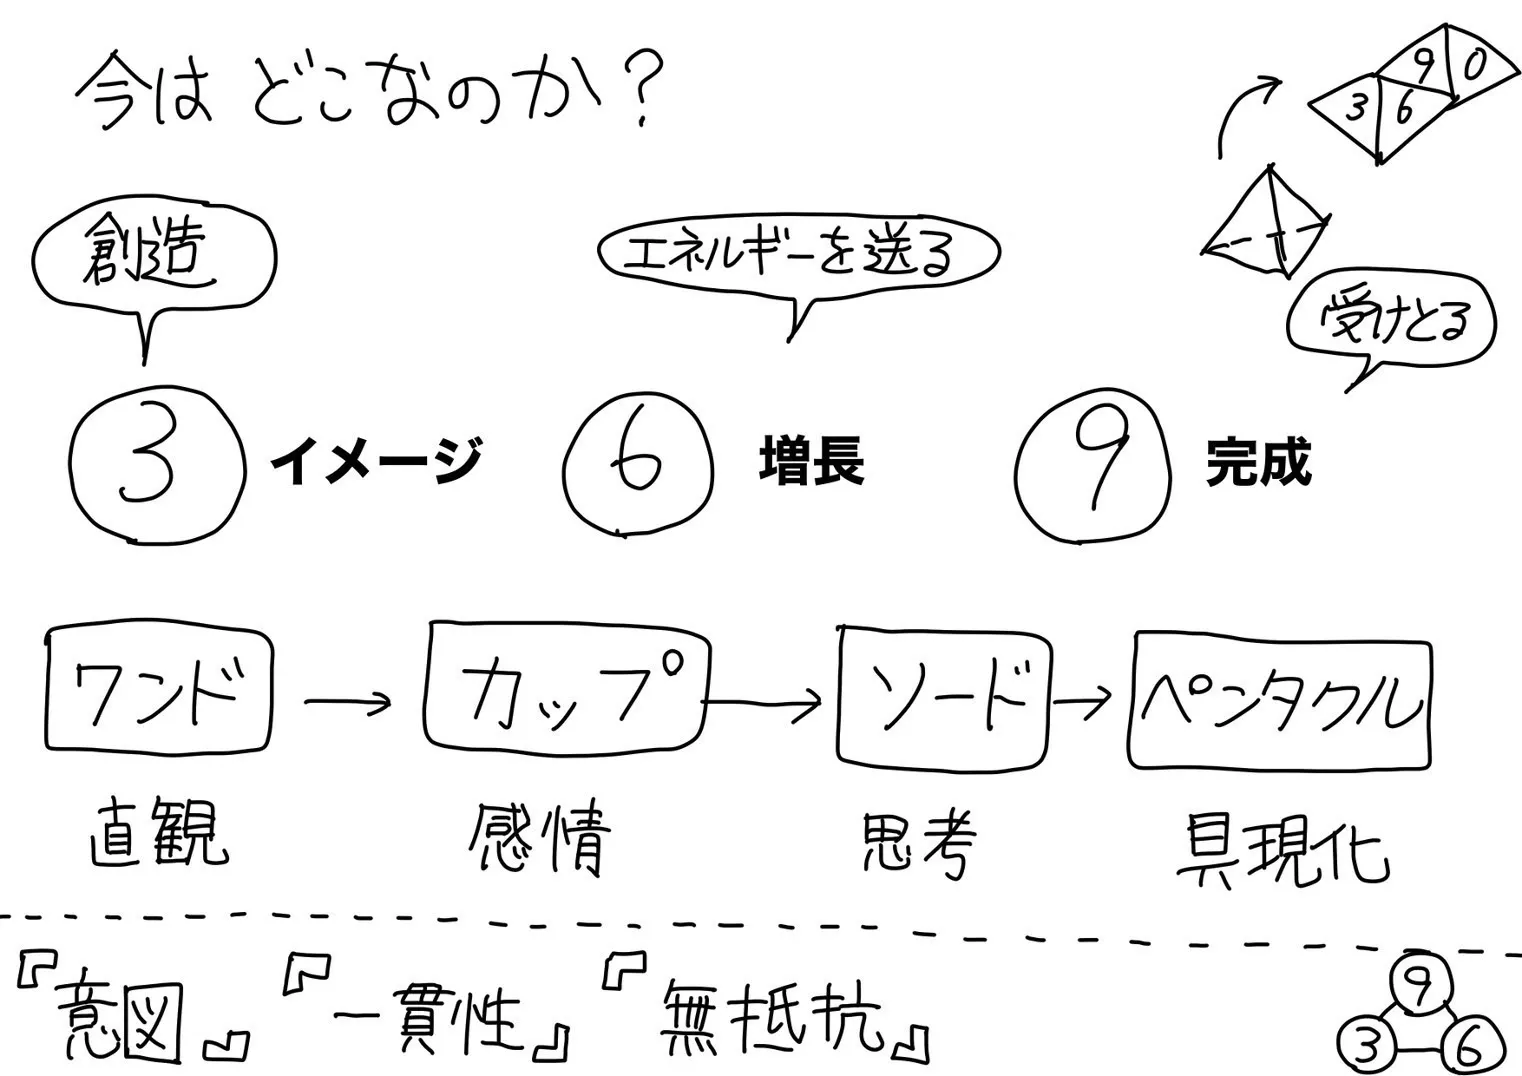 今はどこなのか？
9 0
3 6
創造
エネルギーを送る
受けとる
3 イメージ 6 増長 9 完成
ワンド → カップ → ソード → ペンタクル
直観 感情 思考 具現化
『意図』『一貫性』『無抵抗』
9
3 6